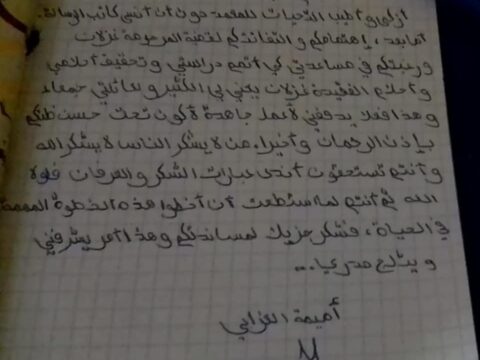 أزكى و أطيب التحيات للمقصد دون أن أنسى كاتب الرسالة.
أما بعد، إهتمامكم و التفاتتكم لقضية المرحومة غزلان
ورغبتكم في مساعدتي كي أتمم دراستي و تحقيق أحلامي
و أحلام الفقيدة غزلان يعني لي الكثير و عائلتي جمعاء
و هذا فعلا يدفعني لأعمل جاهدة لأكون تحت حسن ظنكم
بإذن الرحمان و أخيرا، من لا يشكر الناس لا يشكر الله
و أنتم تستحقون أندى عبارات الشكر و العرفان فلولا
الله ثم أنتم لما استطعت أن أخطوا هذه الخطوة المهمة
في الحياة، فشكر جزيك لمساندتكم و هذا أمر يشرفني
و يثلج صدري...
أميمة الغزابي